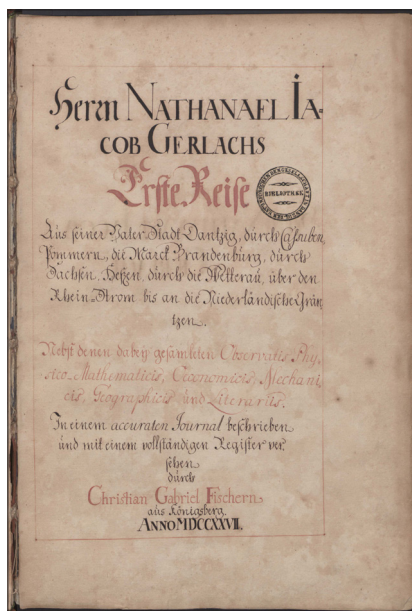 Herrn NATHANAEL JA-
COB GERLACHS
Erste Reise
BIBLIOTHEK
Aus seiner Vater Stadt Dantzig, durch Cassuben,
Pommern, die Marck Brandenburg, durch
Sachsen, Heßen, durch die Wetterau, über den
Rhein Strom bis an die Niederländische Grän
tzen.
Nebst denen dabey gesamleten Observatis Phy-
sico-Mathematicis, Oeconomicis, Mechani
cis, Geographicis und Literariis.
In einem accuraten Journal beschrieben
und mit einem vollständigen Register ver
sehen
durch
Christian Gabriel Fischern
aus Königsberg.
ANNO MDCCXXVII.